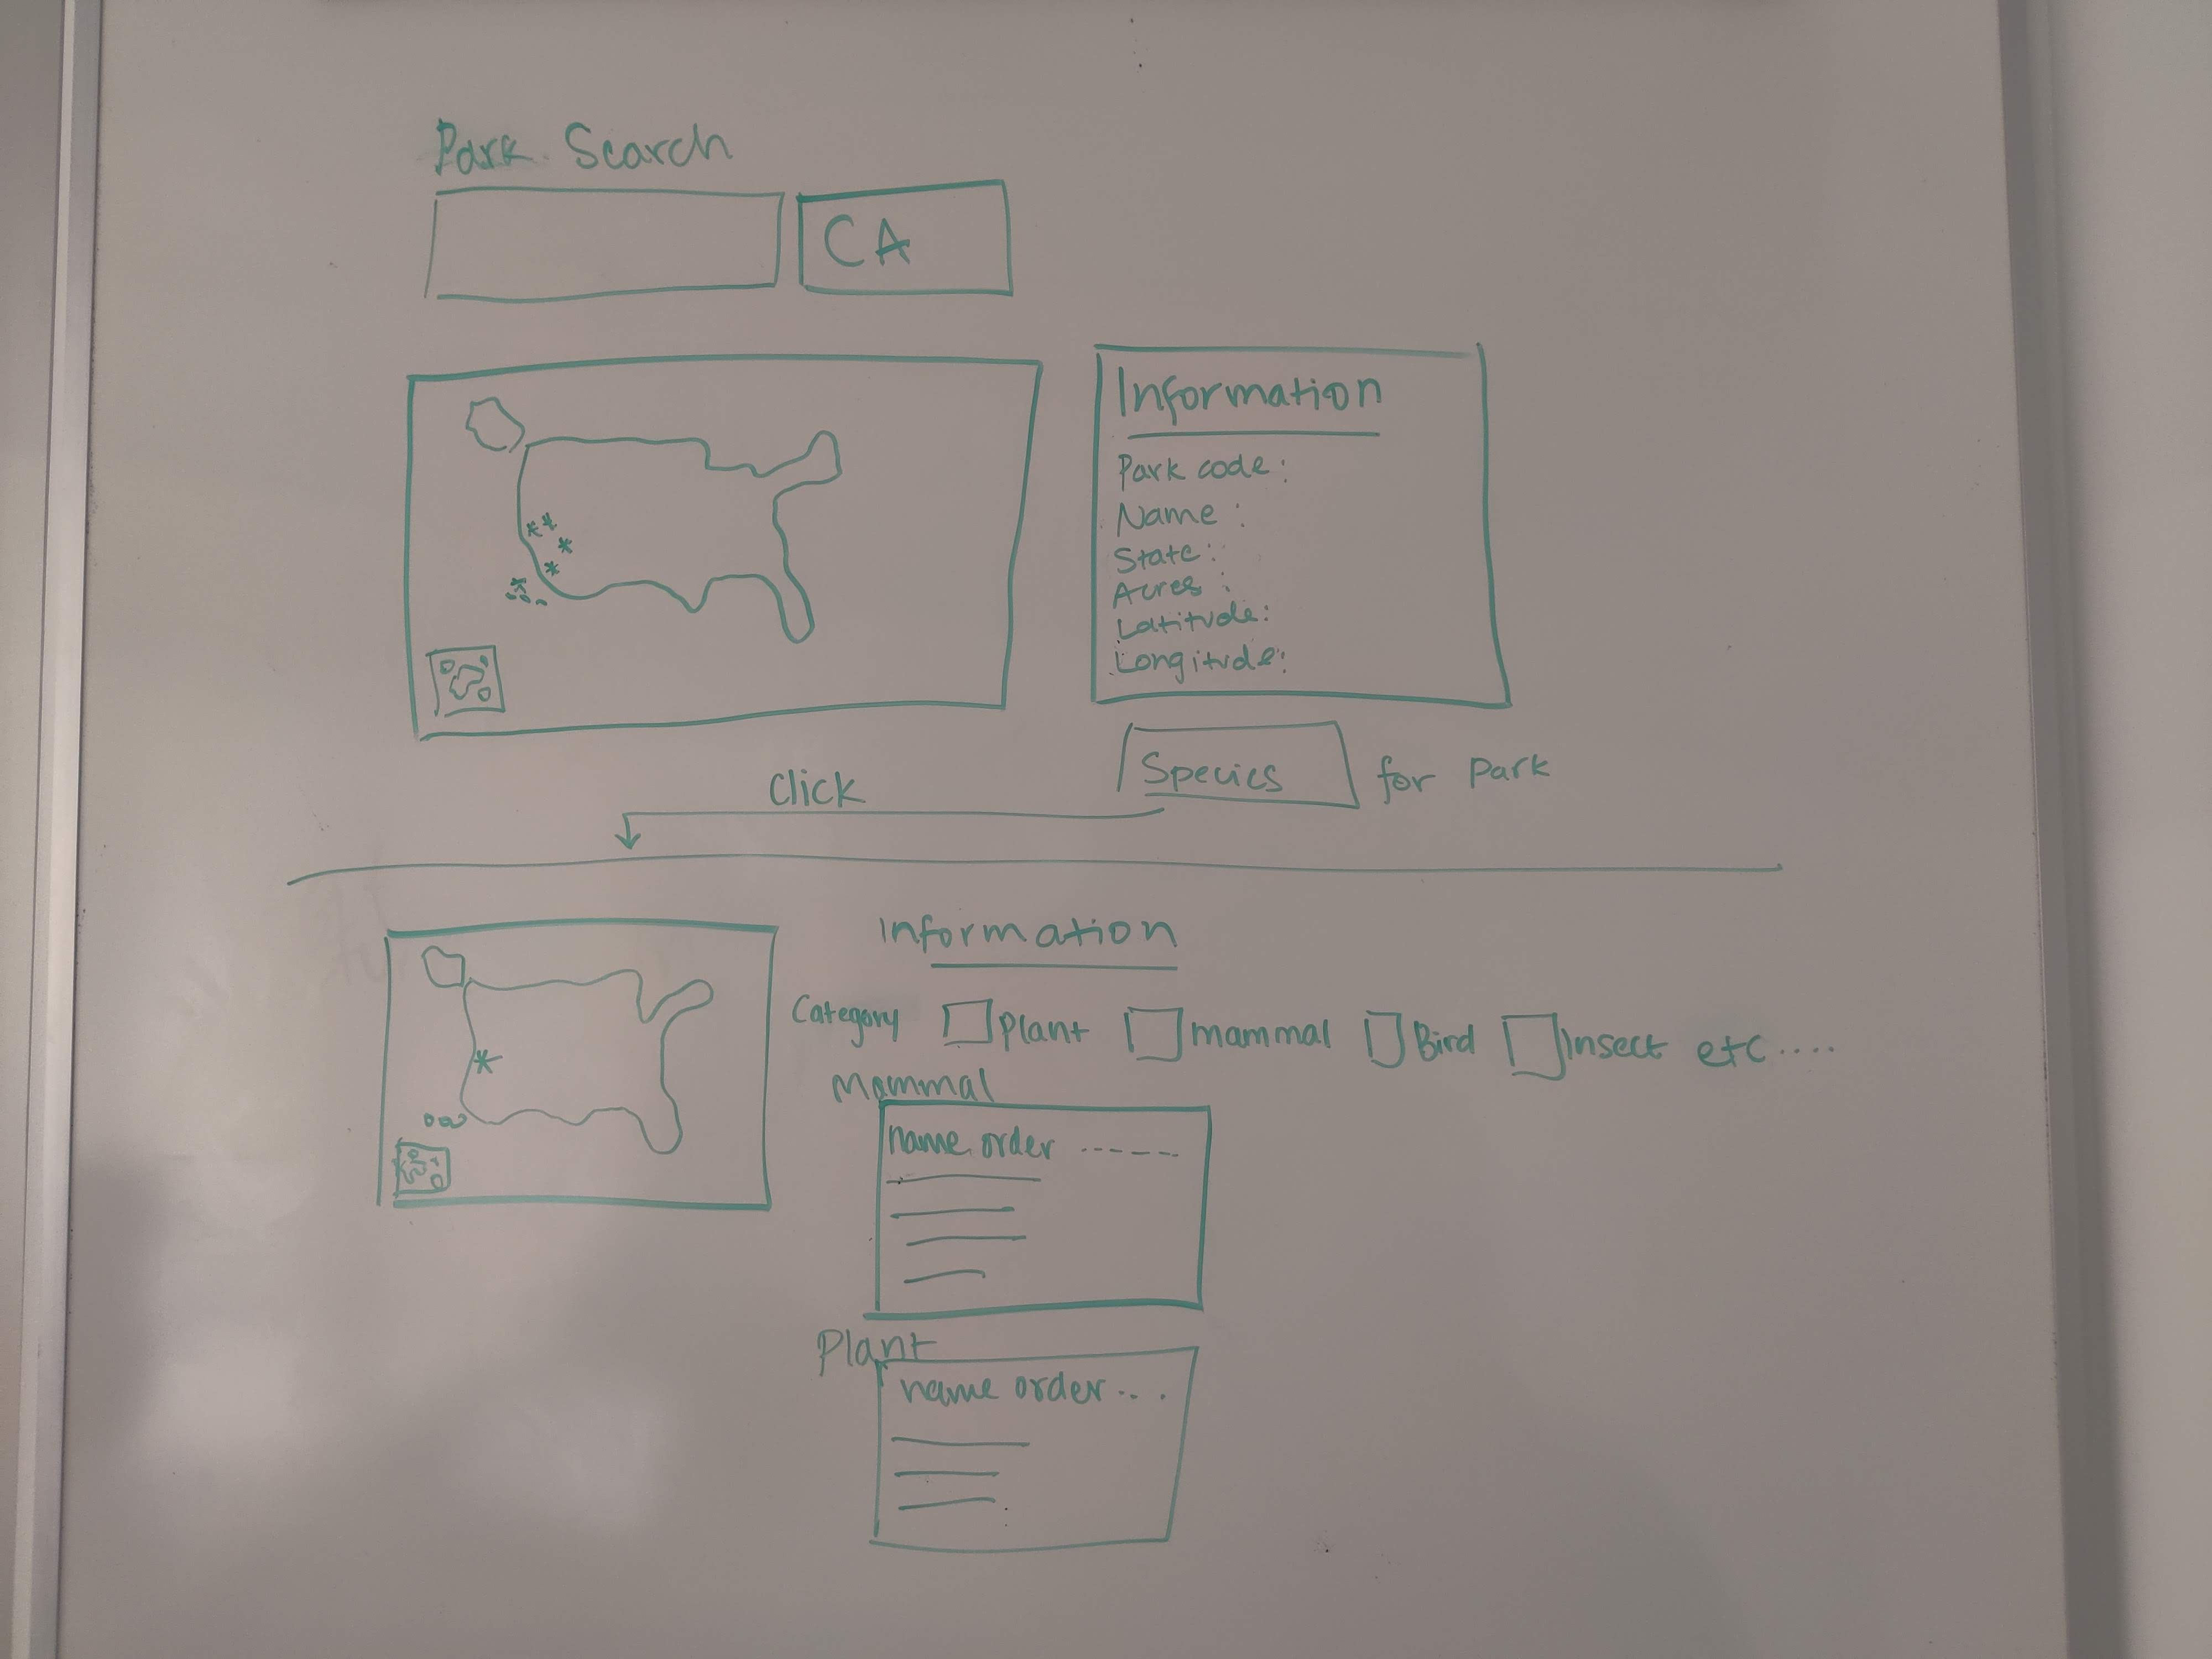 Park Search
CA
Information
Park code:
Name :
State:
Acres :
Latitude:
Longitude:
Species for Park
Click
Information
Category Plant mammal Bird Insect etc....
Mammal
name order ------
Plant
name order...